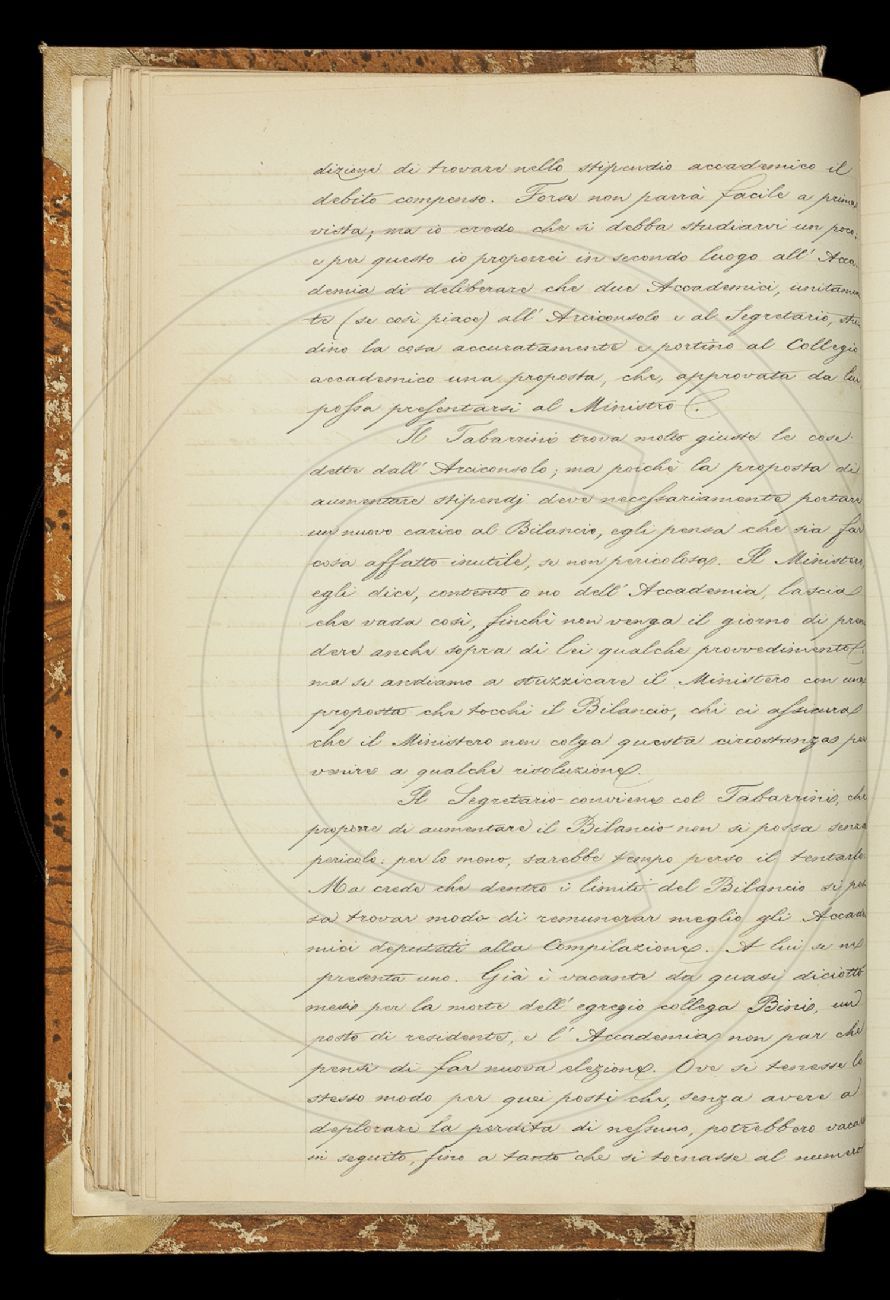 dizione di trovare nello stipendio accademico il
debito compenso. Forse non parrà facile a prima
vista; ma io credo che si debba studiarvi un poco,
e per questo io proporrei in secondo luogo all' Acca-
demia di deliberare che due Accademici, unitamen
te (se così piace) all' Arciconsolo e al Segretario, stu
dino la cosa accuratamente e portino al Collegio
accademico una proposta, che, approvata da lui,
possa presentarsi al Ministro.
Il Tabarrini trova molto giuste le cose
dette dall' Arciconsolo; ma poichè la proposta di
aumentare stipendj deve necessariamente portare
un nuovo carico al Bilancio, egli pensa che sia far
cosa affatto inutile, se non pericolosa. Il Ministero,
egli dice, contento o no dell' Accademia, lascia
che vada così, finchè non venga il giorno di pren
dere anche sopra di lei qualche provvedimento:
ma se andiamo a stuzzicare il Ministero con una
proposta che tocchi il Bilancio, chi ci assicura
che il Ministero non colga questa circostanza per
venire a qualche risoluzione.
Il Segretario conviene col Tabarrini, che
proporre di aumentare il Bilancio non si possa senza
pericolo: per lo meno, sarebbe tempo perso il tentarlo.
Ma crede che dentro i limiti del Bilancio si pos
sa trovar modo di remunerar meglio gli Accade
mici deputati alla Compilazione. A lui se ne
presenta uno. Già è vacante da quasi diciotto
mesi per la morte dell' egregio collega Bini, un
posto di residente, e l' Accademia non par che
pensi di far nuova elezione. Ove si tenesse lo
stesso modo per quei posti che, senza avere a
deplorare la perdita di nessuno, potrebbero vacar
in seguito, fino a tanto che si tornasse al numero